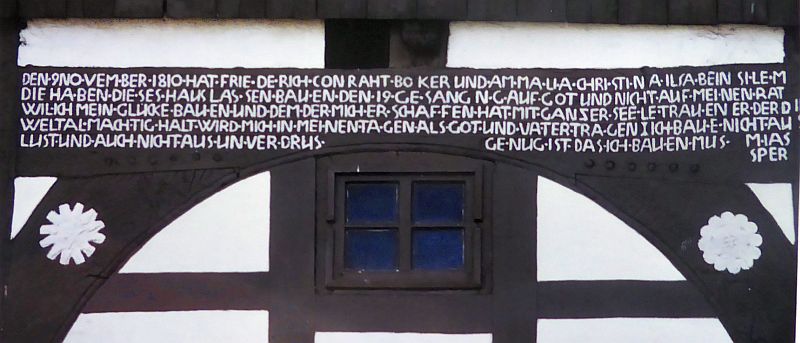 DEN·9NO·VEM·BER·1810·HAT·FRIE·DE·RICH·CON RAHT·BO KER UND·AM·MA·LI·A·CHRI·STI·N A·ILSA·BEIN SI·LE·M
DIE HA·BEN·DIE·SES·HAUS LAS·SEN·BAU·EN·DEN 19·GE·SANG N·G·AUF·GOT UND NICHT·AUF·MEI·NEN·RAT
WIL·ICH MEIN·GLÜCKE·BAU·EN·UND·DEM·DER·MICH·ER·SCHAF·FEN·HAT·MIT·GAN SER·SEE·LE·TRAU·EN ER·DER·DI
WELT·AL·MÄCH·TIG·HALT·WIRD·MICH·IN·MEI·NEN·TA·GEN·ALS·GOT·UND·VA·TER·TRA·GEN I ICH·BAU·E·NICHT·AU
LUST·UND·AUCH·NICHT·AUS·UN·VER·DRUS· GE·NUG·IST·DAS·ICH·BAU·EN·MUS· M·IAS
SPER